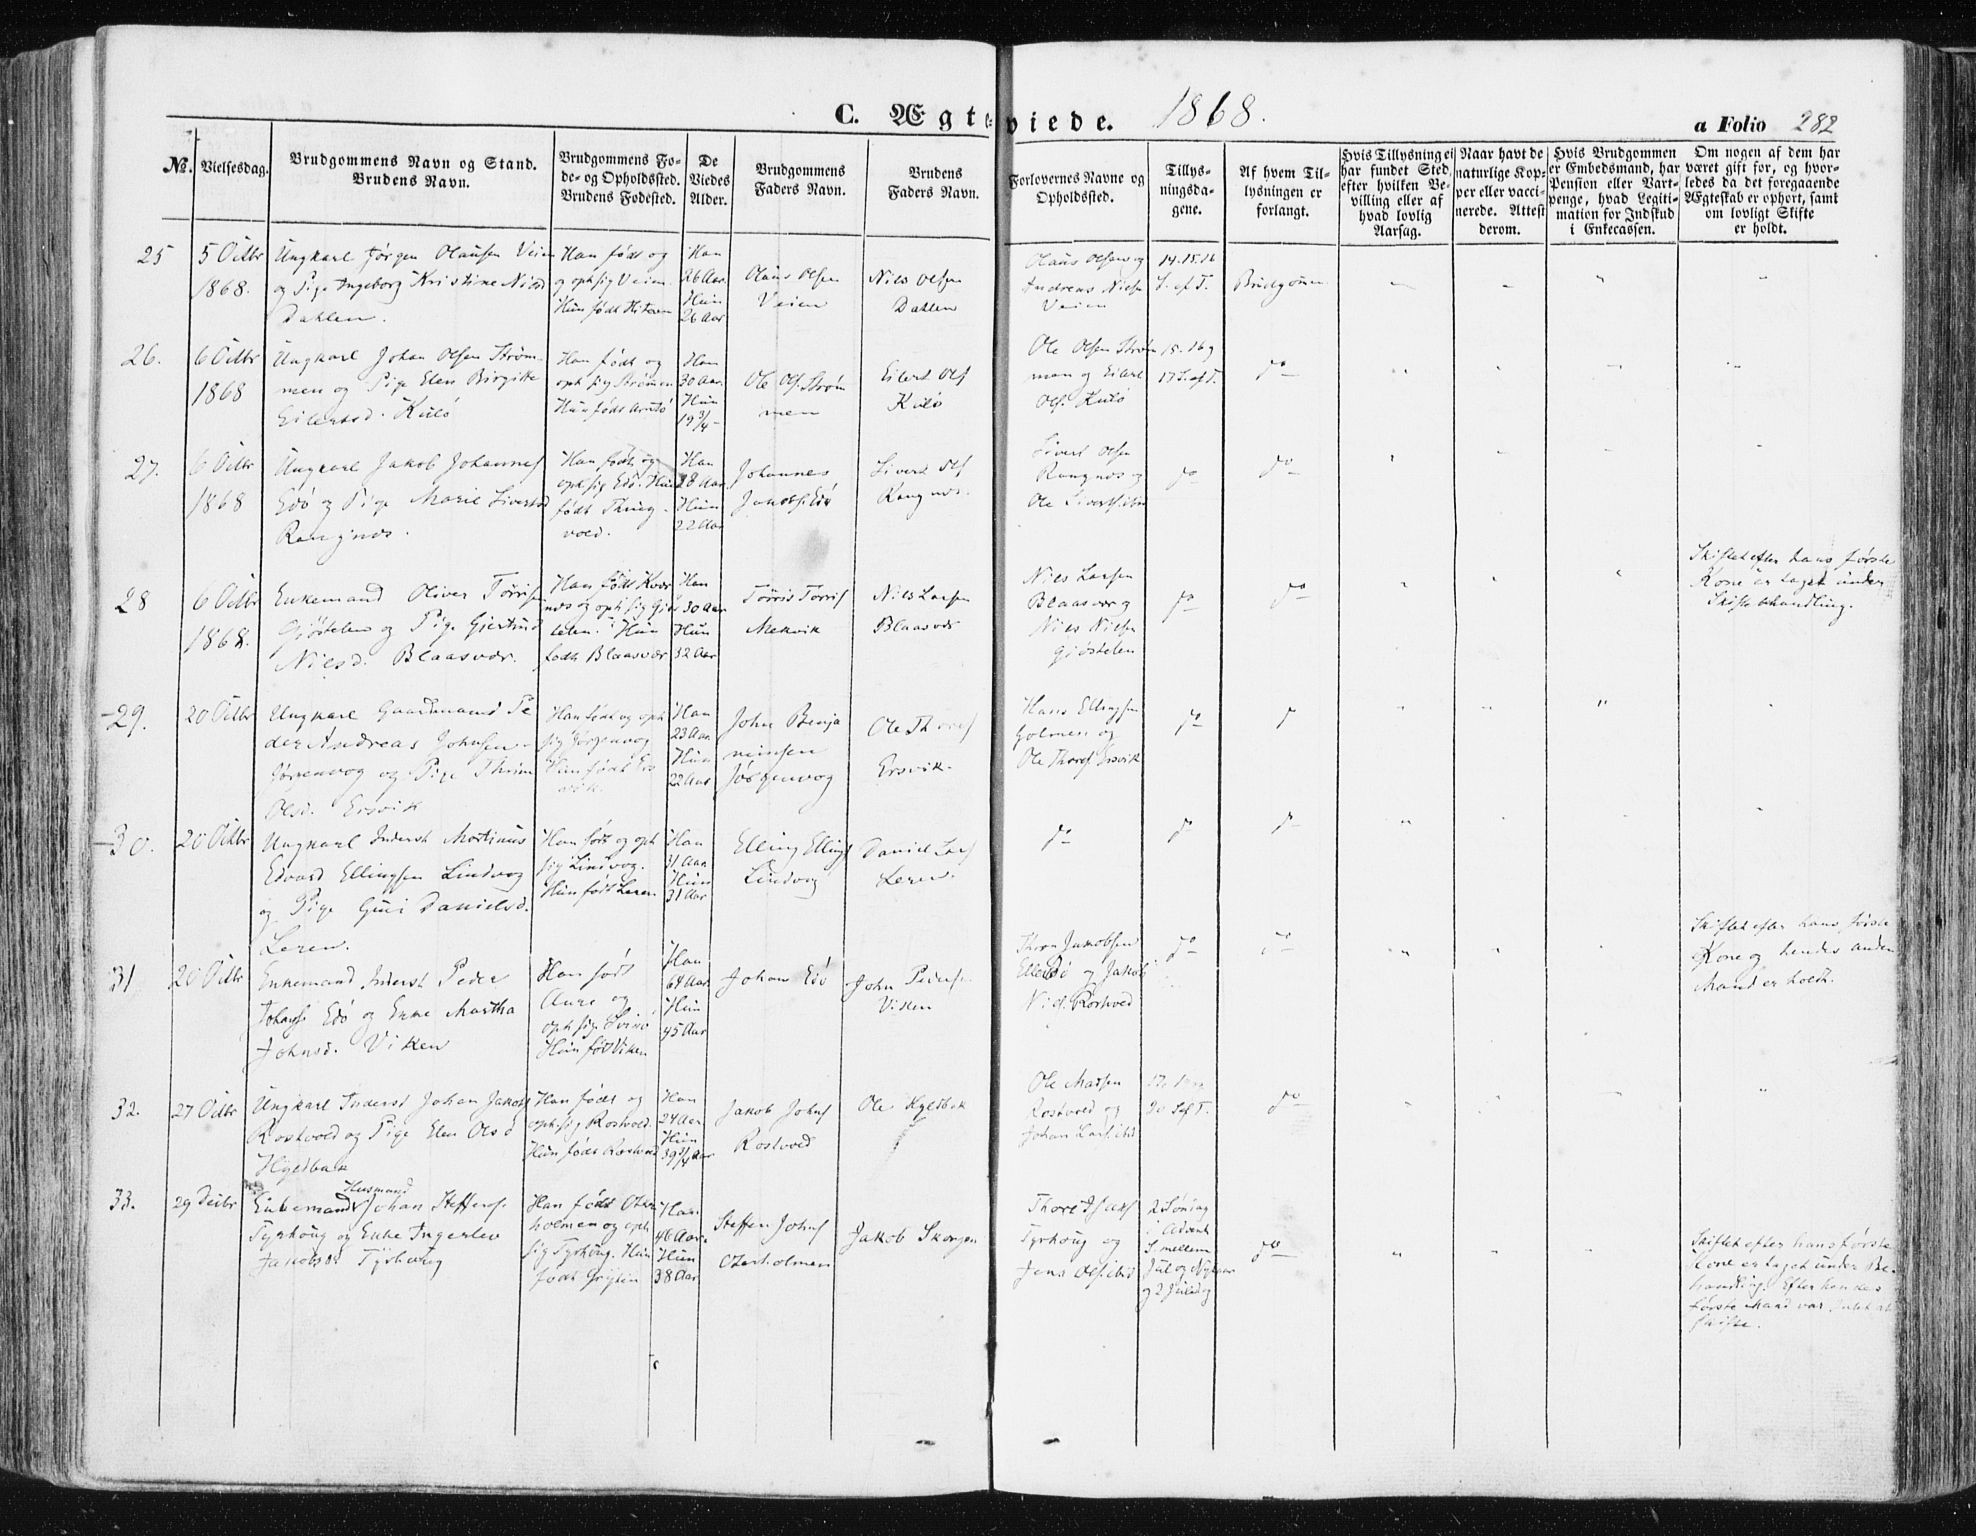 C. Ægteviede. 1868.
a Folio 282
№.
Vielsesdag.
Brudgommens Navn og Stand.
Brudens Navn.
Brudgommens Fo-
de- og Opholdssted.
Brudens Fødested.
De
Viedes
Alder.
Brudgommens
Faders Navn.
Brudens
Faders Navn.
Forlovernes Navne og
Opholdssted.
Tillys-
ningsda-
gene.
Af hvem Til-
lysningen er
forlangt.
Hvis Tillysning ei
har fundet Sted,
efter hvilken Be-
villing eller af
hvad lovlig
Aarsag.
Naar havt de
naturlige Kop-
per eller vacci-
nerede. Attest
derom.
Hvis Brudgommen
er Embedsmand, har
Pension eller Vart-
penge, hvad Legiti-
mation for Indskud
i Enkecassen.
Om nogen af dem har
været gift før, og hvor-
ledes da det foregaaende
Ægteskab er ophørt, samt
om lovligt Skifte
er holdt.
25
5 Octbr
1868.
Ungkarl Jørgen Olausen Veien
og Pige Ingeborg Kristine Nilsd
Dahlen.
Han født og
og oph sig Veien.
Hun født Hiteren
Han
26 Aar
Hun
26 Aar
Olaus Olsen
Veien
Nils Olsen
Dahlen
Olaus Olsen og
Andreas Nielsen
Veien
14. 15. 16
S. ef T.
Brudgommen
26.
6 Octbr
1868
Ungkarl Johan Olsen Strøm-
men og Pige Elen Birgitte
Eilertsd. Kulø
Han født og
oph sig Strømmen
Hun født
Han
30 Aar.
Hun
19 3/4
Ole Ols. Strøm
men
Eilert Ols
Kulø
Ole Olsen Strøm
men og Eilert
Ols. Kulø
15. 16 og
17 S. ef T.
do
27.
6 Octbr
1868
Ungkarl Jakob Johannes
Edø og Pige Marie Sivertsd
Rangnæs.
Han født og
oph sig Edø. Hun
født Thing-
vold.
Han
28 Aar
Hun
22 Aar
Johannes
Jakobs. Edø
Sivert Ols
Rangnæs.
Sivert Olsen
Rangnæs og
Ole Siverts. ibd
do
do
28
6 Octbr
1868.
Enkemand Oliver Tørrisen
Gjøstelen og Pige Gjertrud
Nilsd. Blaasvær.
Han født Kvær
næs og oph sig Gjøs
telen. Hun
født Blaasvær
Han
30 Aar
Hun
32 Aar
Tørris Tørris
Mekvik
Nils Larsen
Blaasvær
Niels Larsen
Blaasvær og
Niels Nielsen
Gjøstelen
do
do
Skiftet efter hans første
Kone er taget under
Skiftebehandling.
29.
20 Octbr
Ungkarl Gaardmand Pe
der Andreas Johnsen
Jørgenvog og Pige
Olsd. Ersvik
Han født og oph
sig Jørgenvog
Hun født Ers
vik.
Han
23 Aar
Hun
22 Aar
John Benja
minsen
Jørgenvog
Ole Thores
Ersvik.
Hans Ellingsen
Golmen og
Ole Thores. Ersvik
do
30.
20 Octbr
Ungkarl Inderst Martinus
Edvard Ellingsen Lindvog
og Pige Guri Danielsd.
Leren.
Han født og oph
sig Lindvog.
Hun født Leren.
Han
31 Aar
Hun
31 Aar
Elling Ellings
Lindvog
Daniel Lars
Leren.
do
31
20 Octbr
Enkemand Inderst Peder
Johans Edø og Enke Martha
Johnsd. Viken
Han født
Aure og
oph sig
Hun født Viken
Han
64 Aar
Hun
45 Aar
Johan Edø
John Peders.
Viken
Thron Jakobsen
og Jakob
Nils. Rostvold
do
do
Skiftet efter hans første
Kone og hendes anden
Mand er holdt.
32.
27 Octbr
Ungkarl Inderst Johan Jakobs
Rostvold og Pige Elen Olsd
Han født og
oph sig Rostvold
Hun født Rostvold
Han
24 Aar
Hun
39 3/4 Aar
Jakob Johns
Rostvold
Ole
Ole Madsen
Rostvold og
Johan Lars. ibd.
20 S. ef T.
do
33.
29 Decbr
Husmand
Enkemand Johan Steffens.
Tyrhoug og Enke Ingerlev
Jakobsd Tyrhoug
Han født Oter
holmen og oph
sig Tyrhoug. Hun
født
Han
46 Aar
Hun
38 Aar
Steffen Johns
Oterholmen
Jakob Skorgen
Thore Isaks
Tyrhoug og
Jens Ols. ibd
2 Søndag
i Advent
S. mellem
Jul og Nytaar
og 2 Juledag
do
Skiftet efter hans første
Kone er taget under Be-
handling. Efter hendes
første Mand var Intet at
skifte.